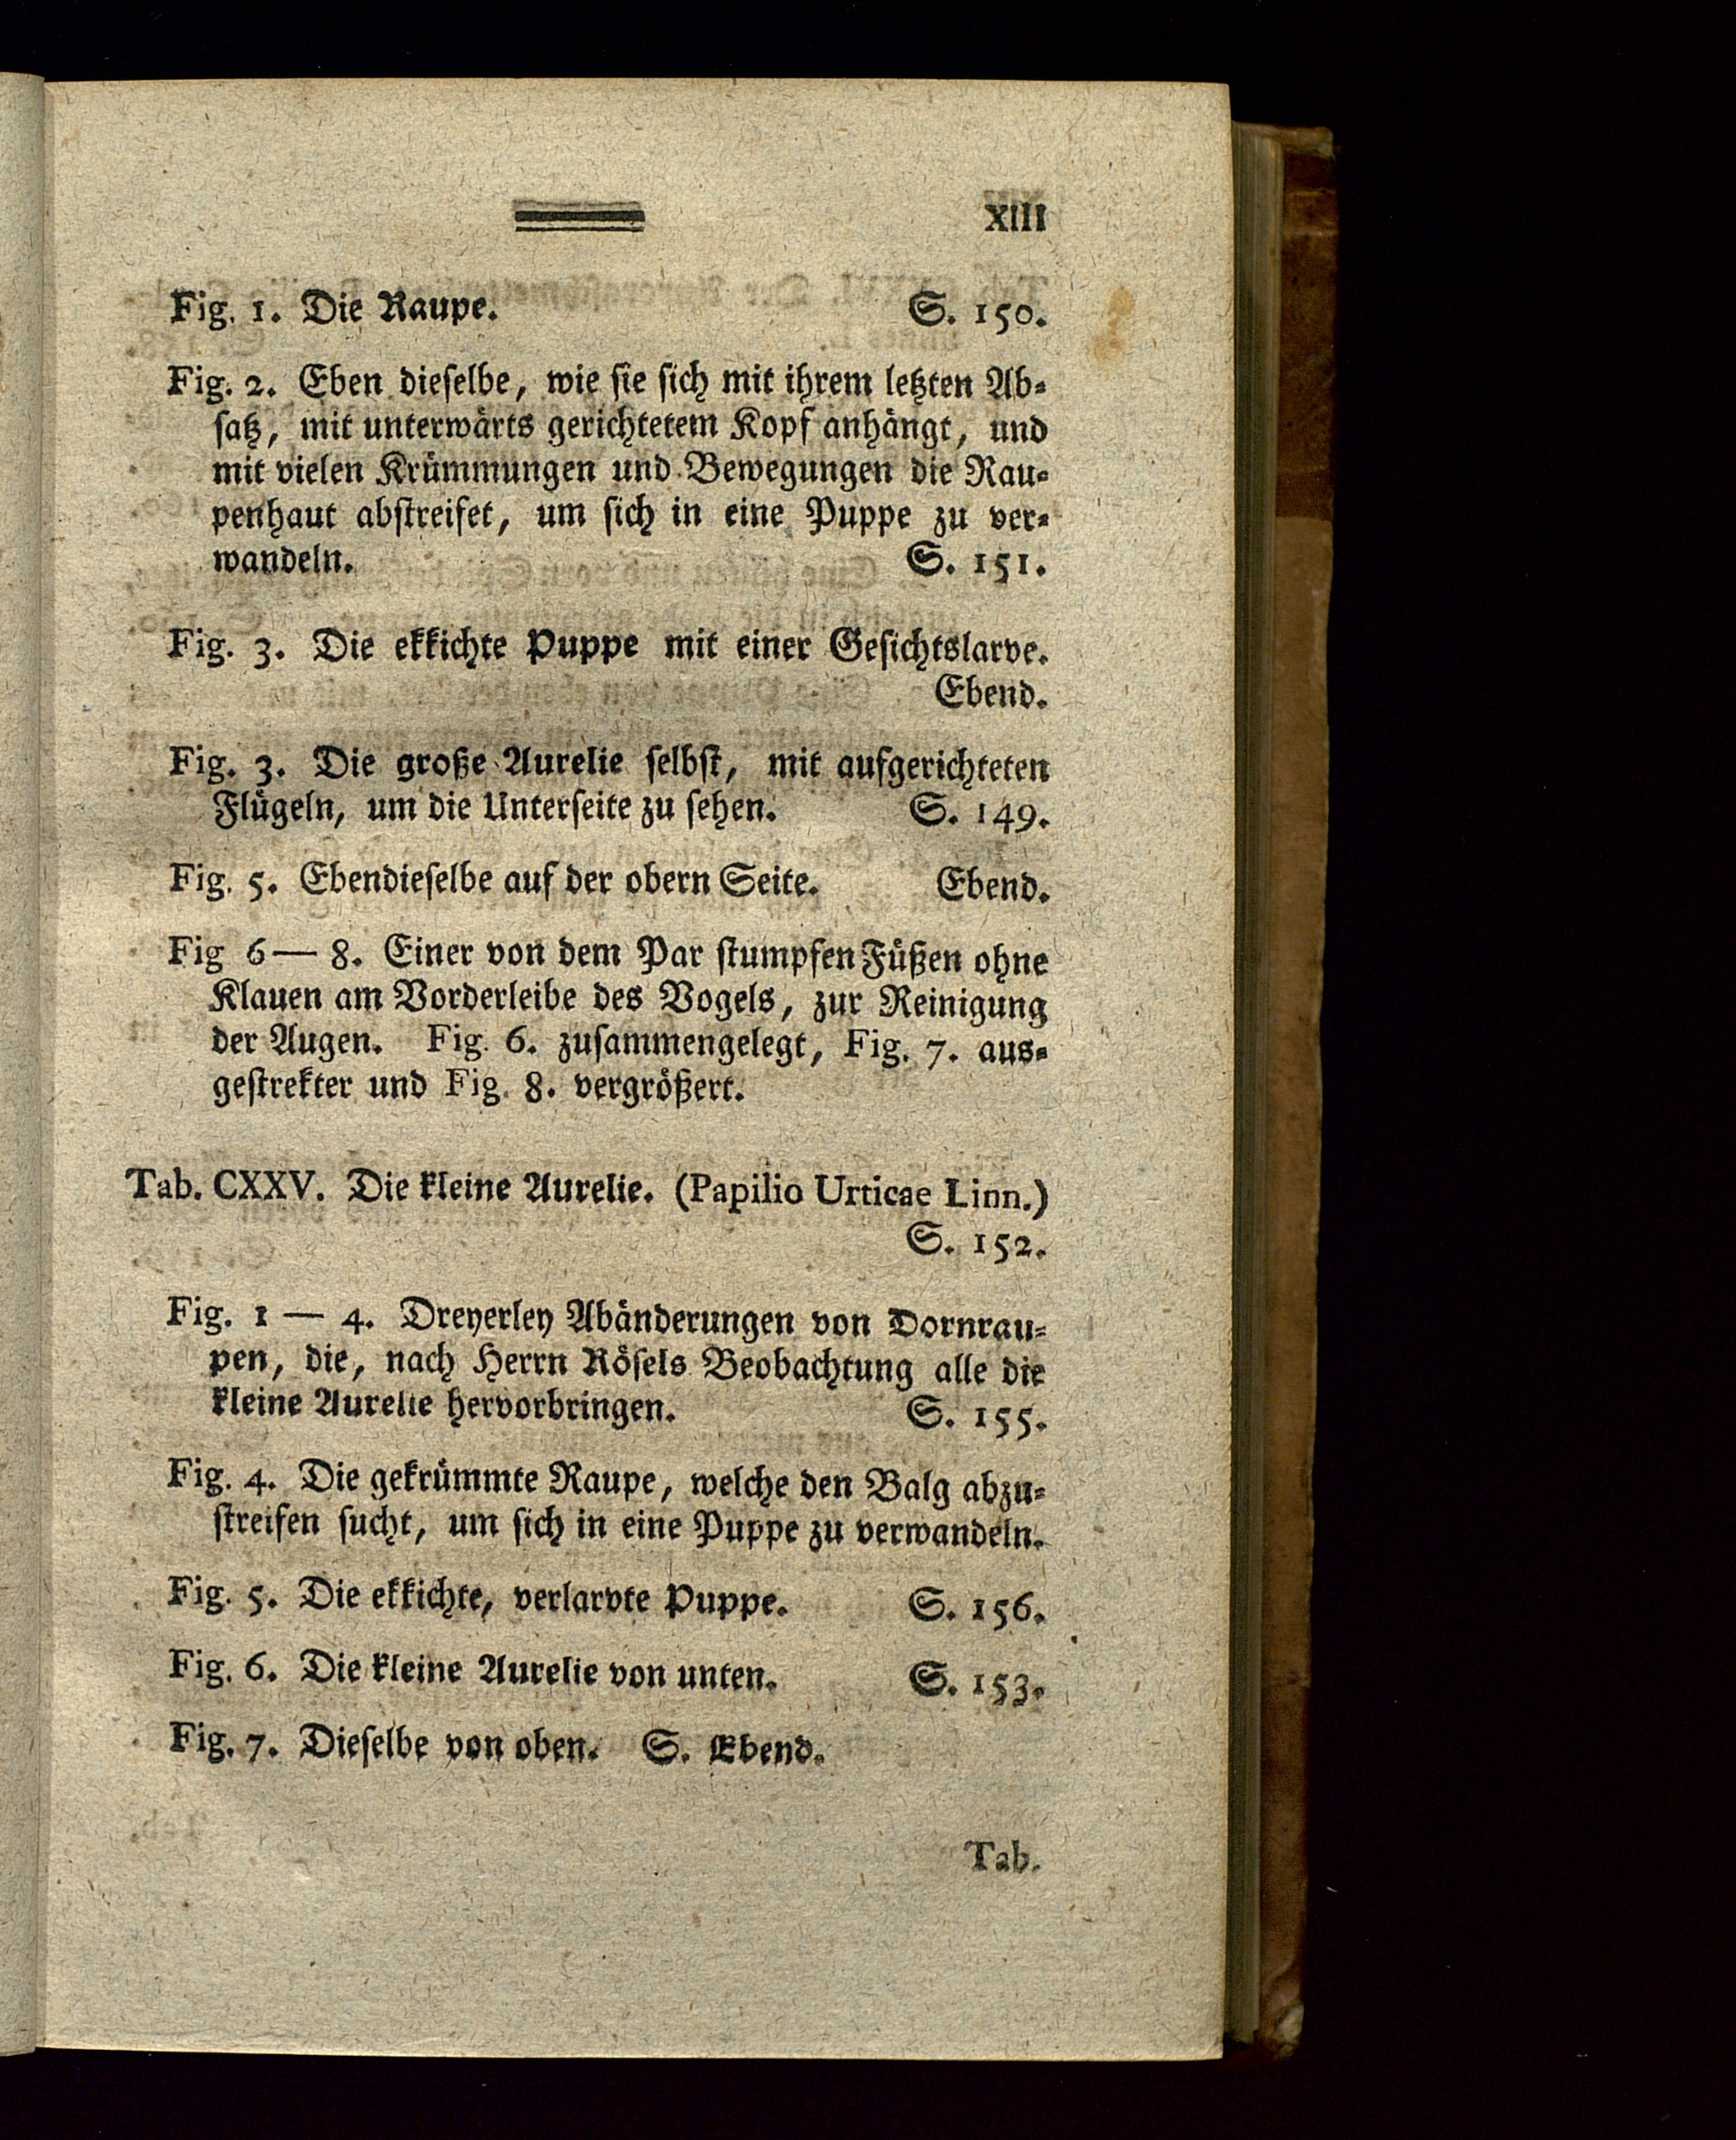 XIII
Fig. 1. Die Raupe. S. 150.
Fig. 2. Eben dieselbe, wie sie sich mit ihrem letzten Ab-
satz, mit unterwärts gerichtetem Kopf anhängt, und
mit vielen Krümmungen und Bewegungen die Rau-
penhaut abstreifet, um sich in eine Puppe zu ver-
wandeln. S. 151.
Fig. 3. Die ekkichte Puppe mit einer Gesichtslarve.
Ebend.
Fig. 3. Die große Aurelie selbst, mit aufgerichteten
Flügeln, um die Unterseite zu sehen. S. 149.
Fig. 5. Ebendieselbe auf der obern Seite. Ebend.
Fig 6 — 8. Einer von dem Par stumpfen Füßen ohne
Klauen am Vorderleibe des Vogels, zur Reinigung
der Augen. Fig. 6. zusammengelegt, Fig. 7. aus-
gestrekter und Fig. 8. vergrößert.
Tab. CXXV. Die kleine Aurelie. (Papilio Urticae Linn.)
S. 152.
Fig. 1 — 4. Dreyerley Abänderungen von Dornrau-
pen, die, nach Herrn Rösels Beobachtung alle die
kleine Aurelie hervorbringen. S. 155.
Fig. 4. Die gekrümmte Raupe, welche den Balg abzu-
streifen sucht, um sich in eine Puppe zu verwandeln.
Fig. 5. Die ekkichte, verlarvte Puppe. S. 156.
Fig. 6. Die kleine Aurelie von unten. S. 153.
Fig. 7. Dieselbe von oben. S. Ebend.
Tab.